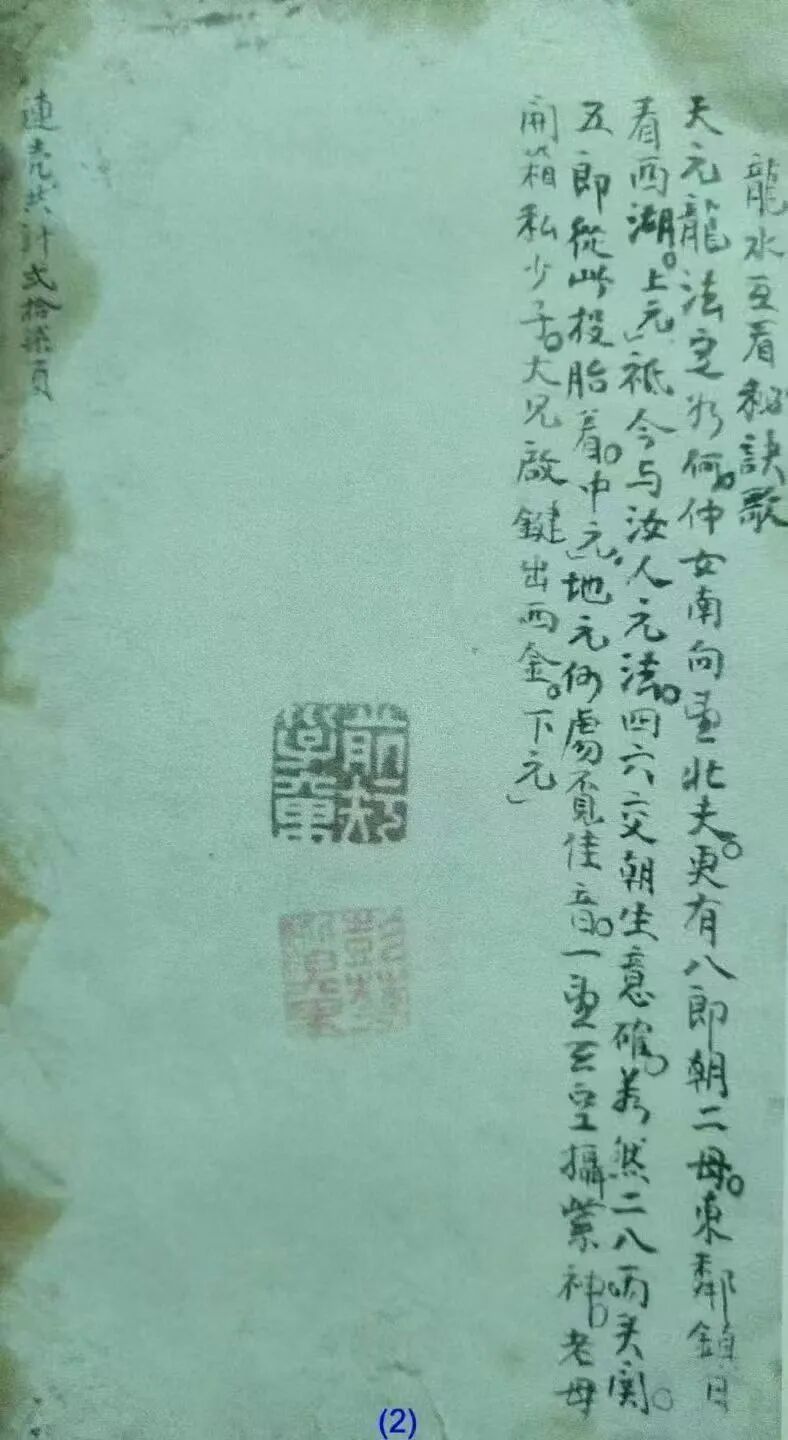 龍水互看秘訣歌
天元龍法定於何。仲女南向画北夫。更有八郎朝二母。東鄰鎮日
看西湖。上元」祗今与汝人元法。四六交朝生意確。若然二八両关阑。
五郎從此投胎着。中元」地元何處覔佳音。一画互呈攝紫神。老母
開箱私少子。大兄啟鍵出西金。下元」
連壳共計弍拾柒頁
(2)